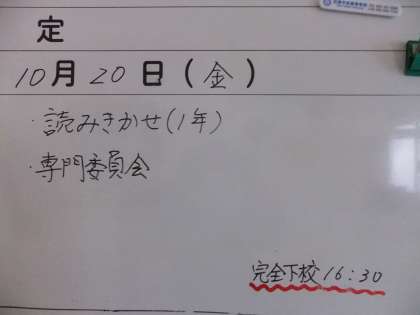 定
10月20日(金)
・読みきかせ(1年)
・専門委員会
完全下校16:30